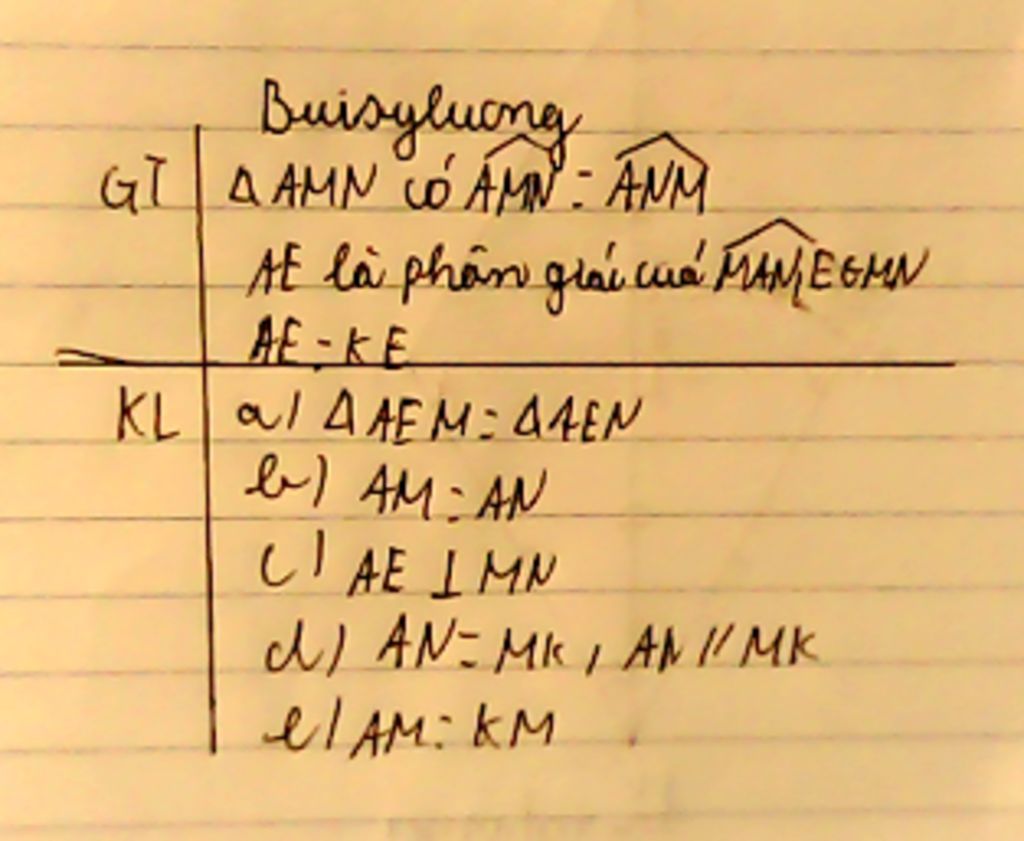 Buisyluong
GT ΔAMN có AMN = ANM
AE là phân giái cuả MAN, E ∈ MN
AE = KE
KL a/ ΔAEM = ΔAEN
b) AM = AN
c/ AE ⊥ MN
d/ AN = MK, AN // MK
e/ AM = KM